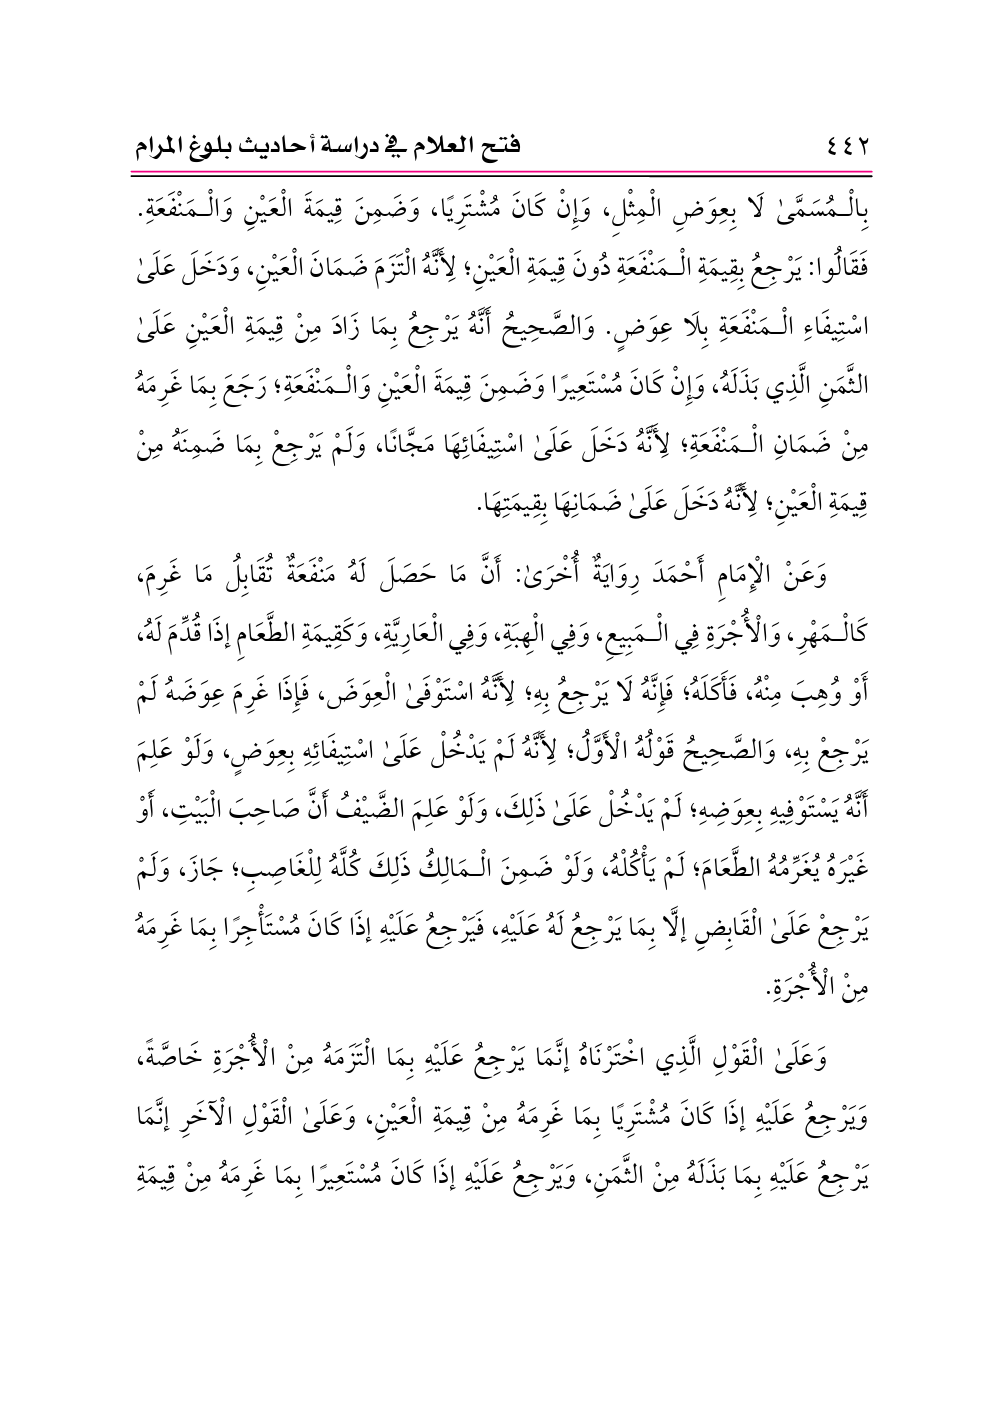 ٤٤٢ فتح العلام في دراسة أحاديث بلوغ المرام
بِالْـمُسَمَّىٰ لَا بِعِوَضِ الْمِثْلِ، وَإِنْ كَانَ مُشْتَرِيًا، وَضَمِنَ قِيمَةَ الْعَيْنِ وَالْـمَنْفَعَةِ.
فَقَالُوا: يَرْجِعُ بِقِيمَةِ الْـمَنْفَعَةِ دُونَ قِيمَةِ الْعَيْنِ؛ لِأَنَّهُ الْتَزَمَ ضَمَانَ الْعَيْنِ، وَدَخَلَ عَلَىٰ
اسْتِيفَاءِ الْـمَنْفَعَةِ بِلَا عِوَضٍ. وَالصَّحِيحُ أَنَّهُ يَرْجِعُ بِمَا زَادَ مِنْ قِيمَةِ الْعَيْنِ عَلَىٰ
الثَّمَنِ الَّذِي بَذَلَهُ، وَإِنْ كَانَ مُسْتَعِيرًا وَضَمِنَ قِيمَةَ الْعَيْنِ وَالْـمَنْفَعَةِ؛ رَجَعَ بِمَا غَرِمَهُ
مِنْ ضَمَانِ الْـمَنْفَعَةِ؛ لِأَنَّهُ دَخَلَ عَلَىٰ اسْتِيفَائِهَا مَجَّانًا، وَلَمْ يَرْجِعْ بِمَا ضَمِنَهُ مِنْ
قِيمَةِ الْعَيْنِ؛ لِأَنَّهُ دَخَلَ عَلَىٰ ضَمَانِهَا بِقِيمَتِهَا.
وَعَنْ الْإِمَامِ أَحْمَدَ رِوَايَةٌ أُخْرَىٰ: أَنَّ مَا حَصَلَ لَهُ مَنْفَعَةٌ تُقَابِلُ مَا غَرِمَ،
كَالْـمَهْرِ، وَالْأُجْرَةِ فِي الْـمَبِيعِ، وَفِي الْهِبَةِ، وَفِي الْعَارِيَّةِ، وَكَقِيمَةِ الطَّعَامِ إذَا قُدِّمَ لَهُ،
أَوْ وُهِبَ مِنْهُ، فَأَكَلَهُ؛ فَإِنَّهُ لَا يَرْجِعُ بِهِ؛ لِأَنَّهُ اسْتَوْفَىٰ الْعِوَضَ، فَإِذَا غَرِمَ عِوَضَهُ لَمْ
يَرْجِعْ بِهِ، وَالصَّحِيحُ قَوْلُهُ الْأَوَّلُ؛ لِأَنَّهُ لَمْ يَدْخُلْ عَلَىٰ اسْتِيفَائِهِ بِعِوَضٍ، وَلَوْ عَلِمَ
أَنَّهُ يَسْتَوْفِيهِ بِعِوَضِهِ؛ لَمْ يَدْخُلْ عَلَىٰ ذَلِكَ، وَلَوْ عَلِمَ الضَّيْفُ أَنَّ صَاحِبَ الْبَيْتِ، أَوْ
غَيْرَهُ يُغَرِّمُهُ الطَّعَامَ؛ لَمْ يَأْكُلْهُ، وَلَوْ ضَمِنَ الْـمَالِكُ ذَلِكَ كُلَّهُ لِلْغَاصِبِ؛ جَازَ، وَلَمْ
يَرْجِعْ عَلَىٰ الْقَابِضِ إلَّا بِمَا يَرْجِعُ لَهُ عَلَيْهِ، فَيَرْجِعُ عَلَيْهِ إذَا كَانَ مُسْتَأْجِرًا بِمَا غَرِمَهُ
مِنْ الْأُجْرَةِ.
وَعَلَىٰ الْقَوْلِ الَّذِي اخْتَرْنَاهُ إنَّمَا يَرْجِعُ عَلَيْهِ بِمَا الْتَزَمَهُ مِنْ الْأُجْرَةِ خَاصَّةً،
وَيَرْجِعُ عَلَيْهِ إذَا كَانَ مُشْتَرِيًا بِمَا غَرِمَهُ مِنْ قِيمَةِ الْعَيْنِ، وَعَلَىٰ الْقَوْلِ الْآخَرِ إنَّمَا
يَرْجِعُ عَلَيْهِ بِمَا بَذَلَهُ مِنْ الثَّمَنِ، وَيَرْجِعُ عَلَيْهِ إذَا كَانَ مُسْتَعِيرًا بِمَا غَرِمَهُ مِنْ قِيمَةِ